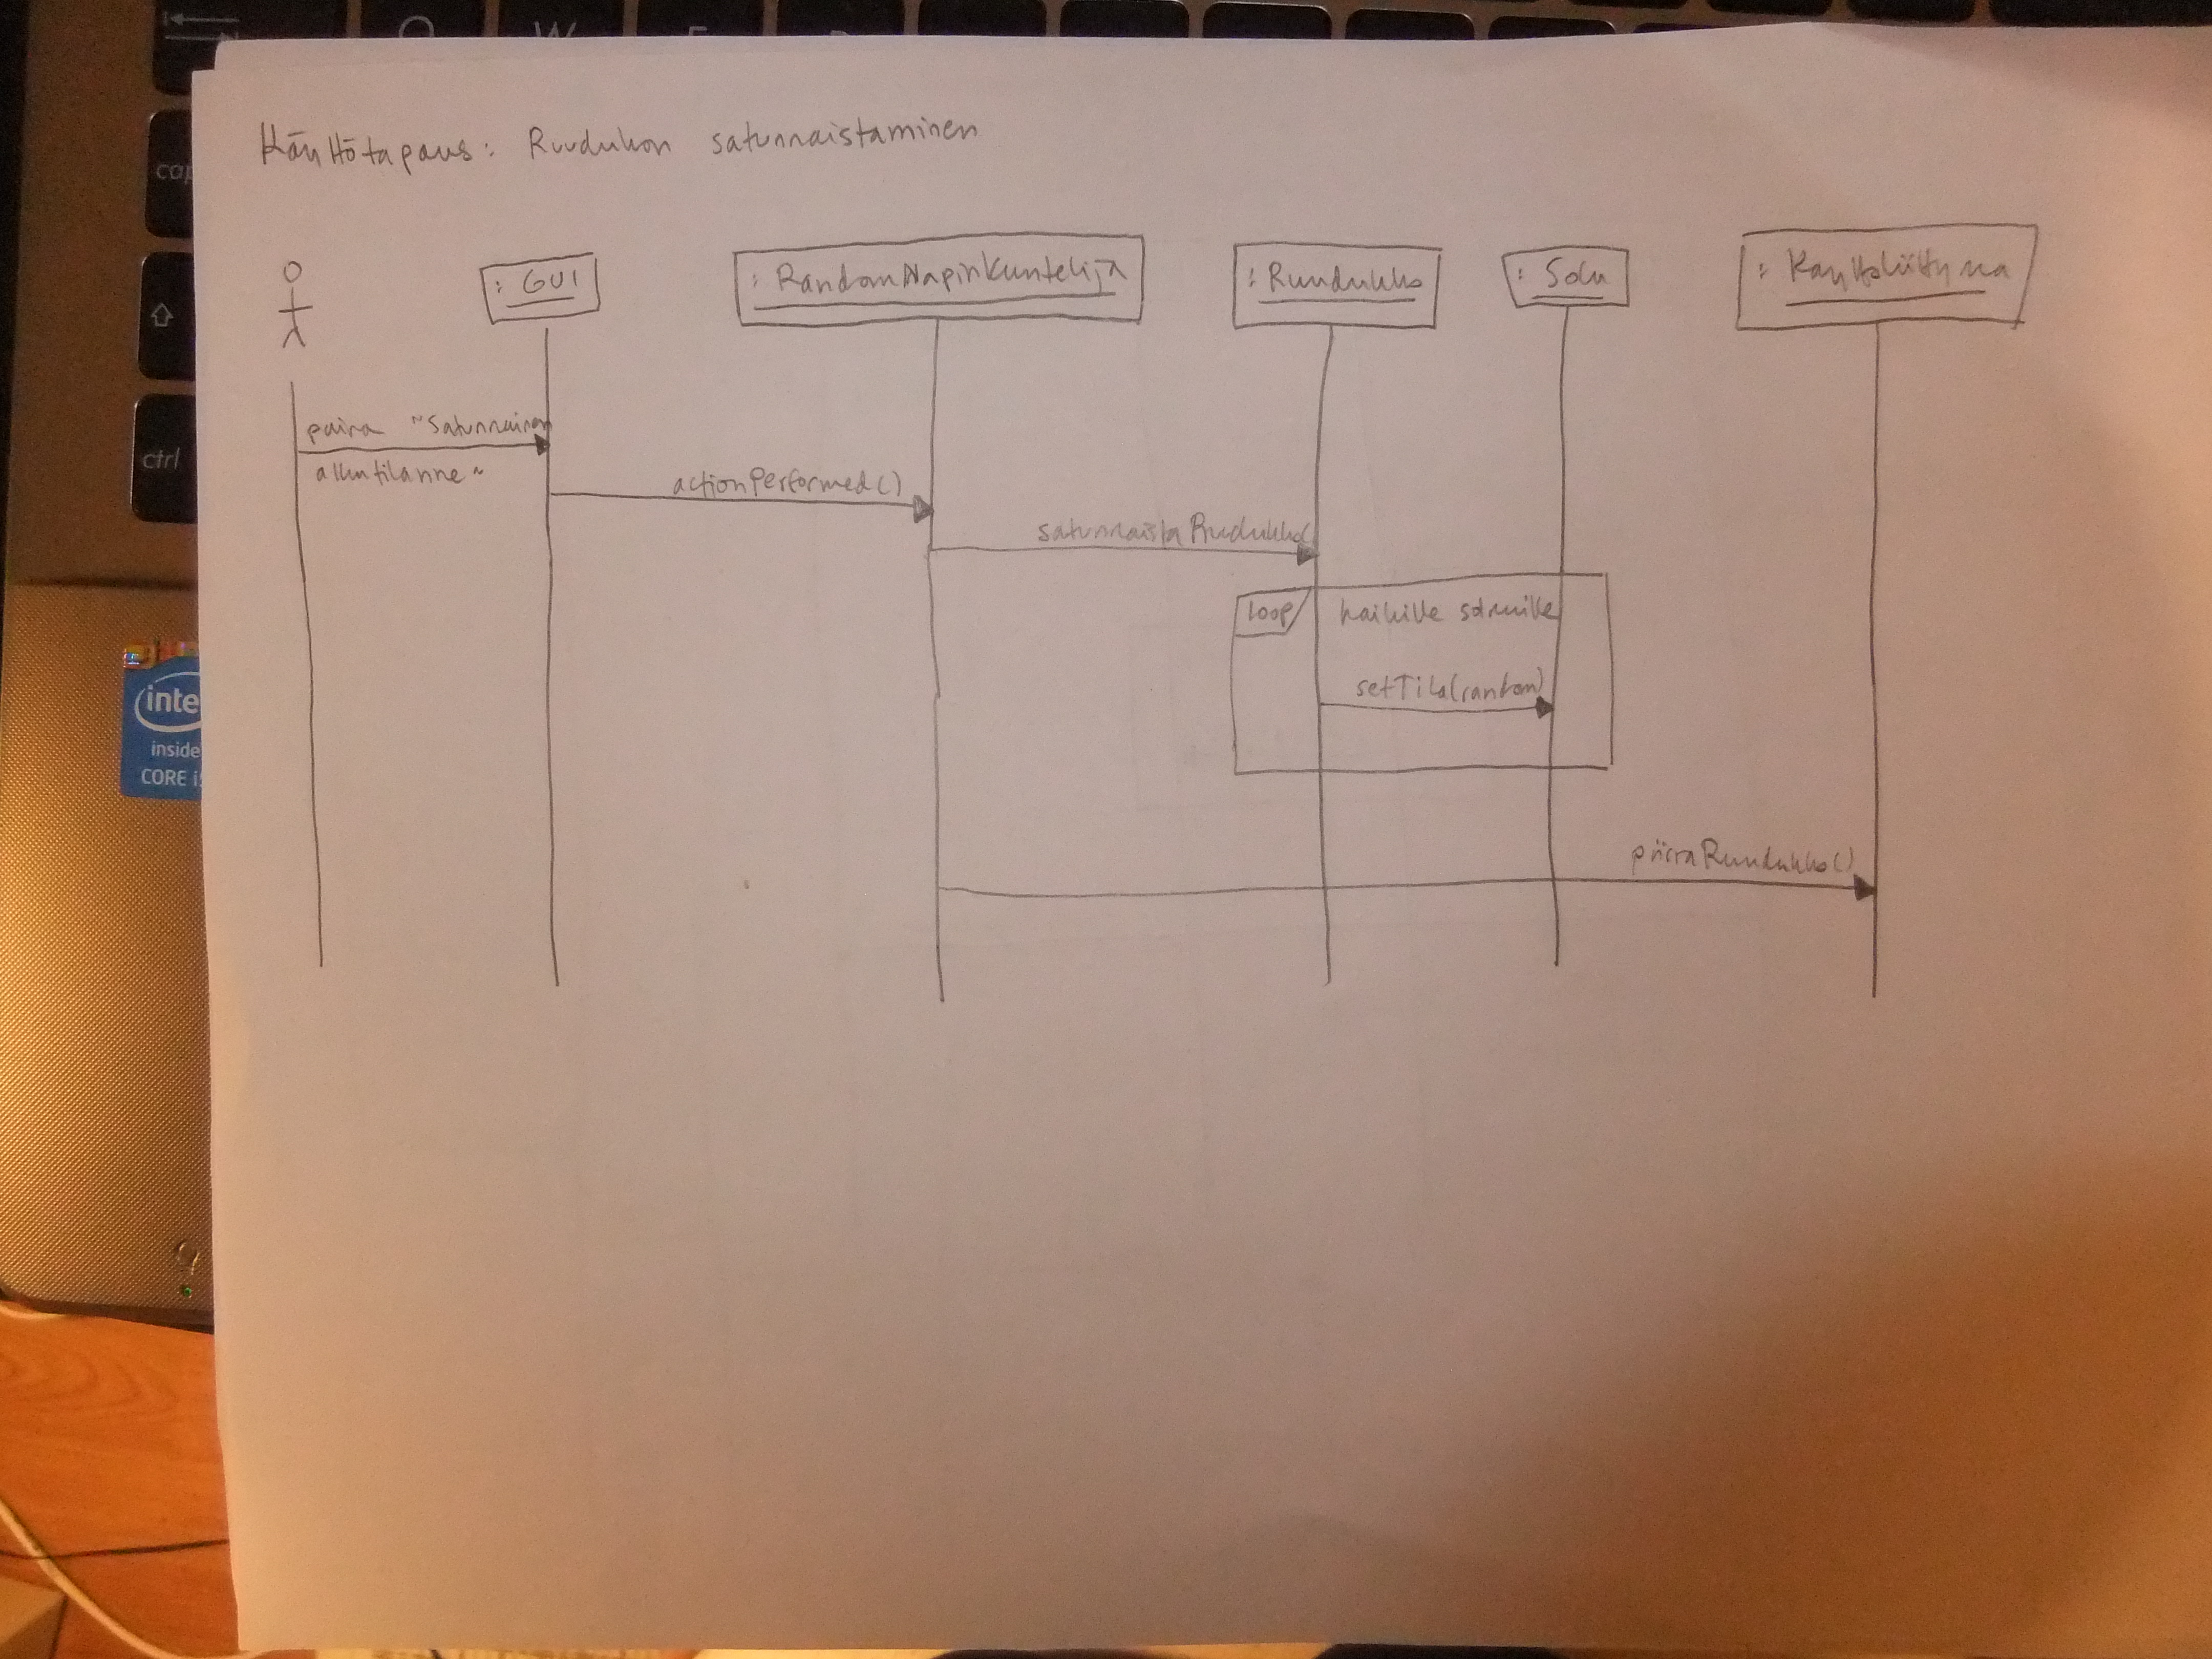 Käyttötapaus: Ruudukon satunnaistaminen
: GUI
: RandomNapinKuuntelija
: Ruudukko
: Solu
: Käyttöliittymä
paina "Satunnainen
alkutilanne"
actionPerformed()
satunnaistaRuudukko(
loop
kaikille soluille
setTila(random)
piirraRuudukko()
cap
ctrl
inte
inside
CORE i5